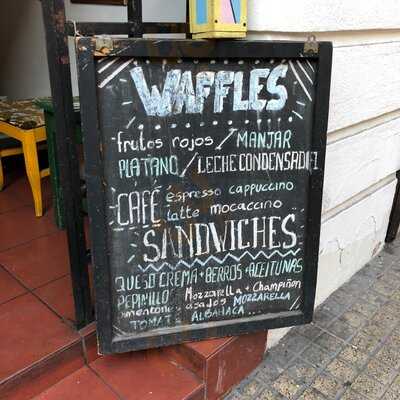 WAFFLES
frutos rojos / MANJAR
PLÁTANO / LECHE CONDENSADA
CAFÉ espresso cappuccino
latte mocaccino
SANDWICHES
QUESO CREMA + BERROS + ACEITUNAS
PEPINILLO Mozzarella + Champiñon
asados MOZZARELLA
TOMATE ALBAHACA